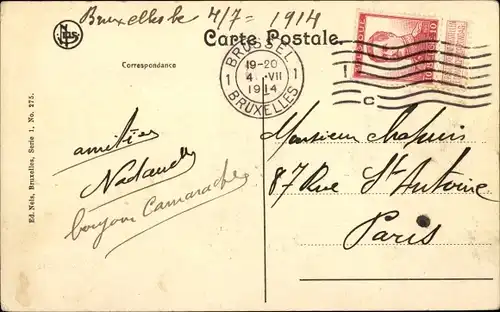 Bruxelles le 4/7 = 1914
Nels
Carte Postale.
Correspondance
BRUSSEL
19-20
1 4 VII 1
1914
BRUXELLES
C
10 10
amitiés
Nadaud
bonjour Camarade
Monsieur Chapuis
87 Rue St Antoine
Paris
Ed. Nels, Bruxelles, Serie 1, No. 275.